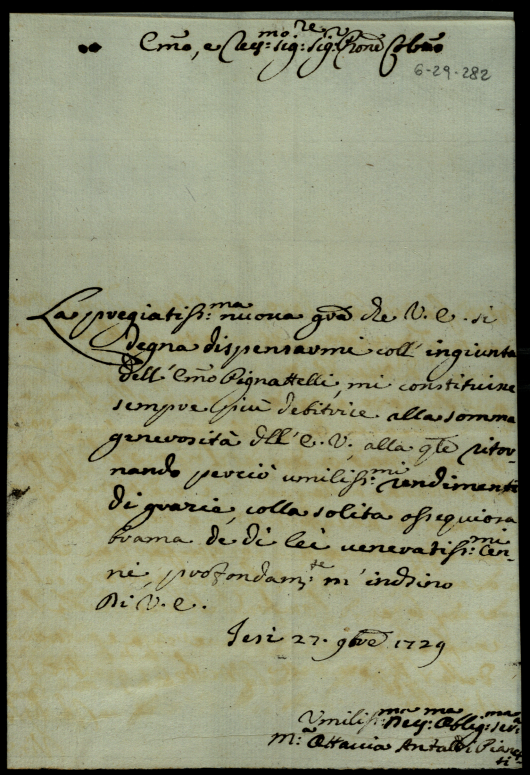 Em̃o, e Rev:mo sig:re sig:r Pron̄e Colmo
6-29-282
La pregiatiss:ma nuova grã che V. E. si
degna dispensarmi coll' ingiunta
dell' Em̃o Pignattelli, mi constituisce
sempre più debitrice alla somma
generosità dell' E. V., alla qle ritor-
nando perciò umiliss:mi rendimenti
di grazie, colla solita ossequiosa
brama de di lei veneratiss:mi Cen-
ni, profondam:te m' inchino
Di V. E.
Jesi 27. 9bre 1729
Umiliss:ma Dev:ma Oblig:ma ser:a
M:a Ottavia Antaldi Pianet-
ti